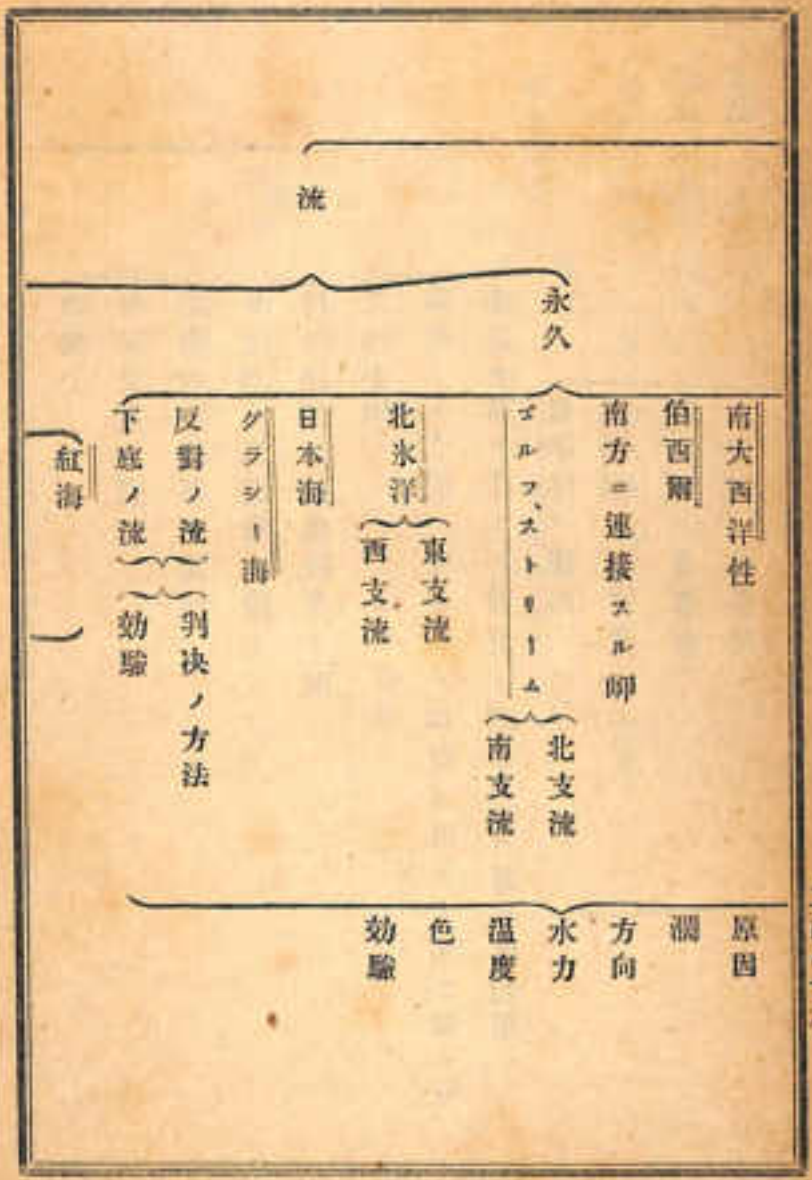 流
永久
南大西洋性
伯西爾
南方ニ連接スル
ゴルフ、ストリーム
北支流
南支流
北氷洋
東支流
西支流
日本海
グラシー海
反對ノ流
下底ノ流
判决ノ方法
効驗
紅海
原因
濶
方向
水力
温度
色
効驗